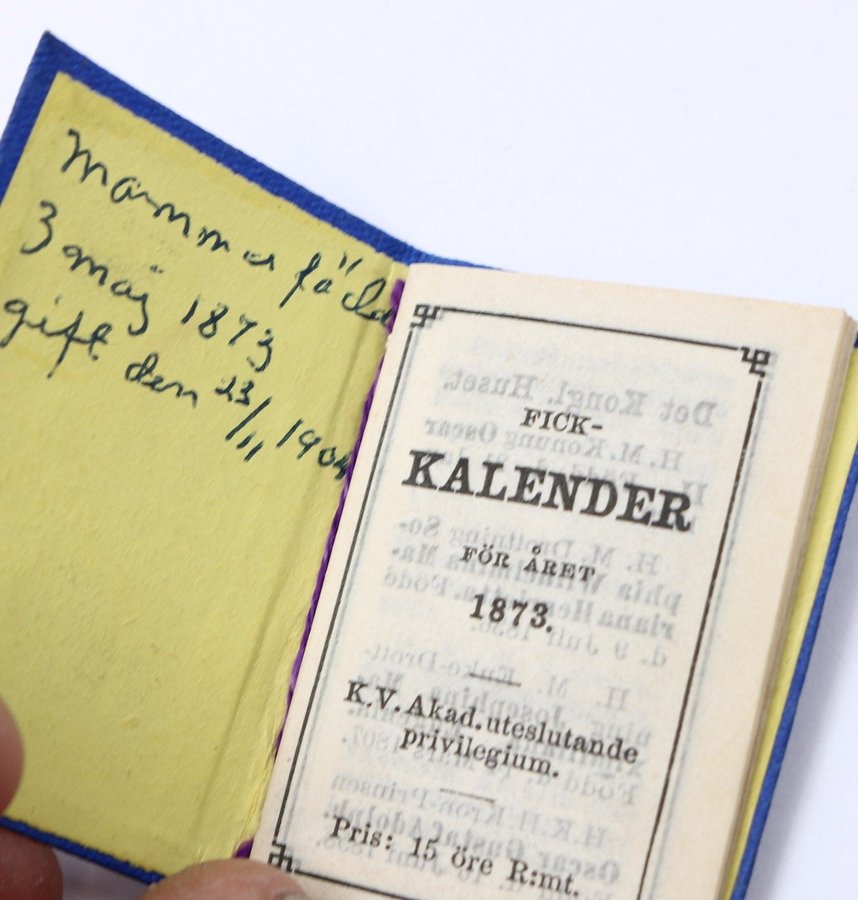 Mamma född
3 maj 1873
gift den 23/11 1904
FICK-
KALENDER
FÖR ÅRET
1873.
K.V. Akad. uteslutande
privilegium.
Pris: 15 öre R:mt.